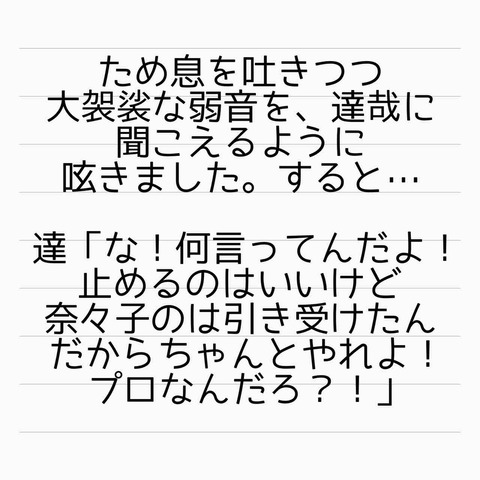 ため息を吐きつつ
大袈裟な弱音を、達哉に
聞こえるように
呟きました。すると…
達「な！何言ってんだよ！
止めるのはいいけど
奈々子のは引き受けたん
だからちゃんとやれよ！
プロなんだろ？！」